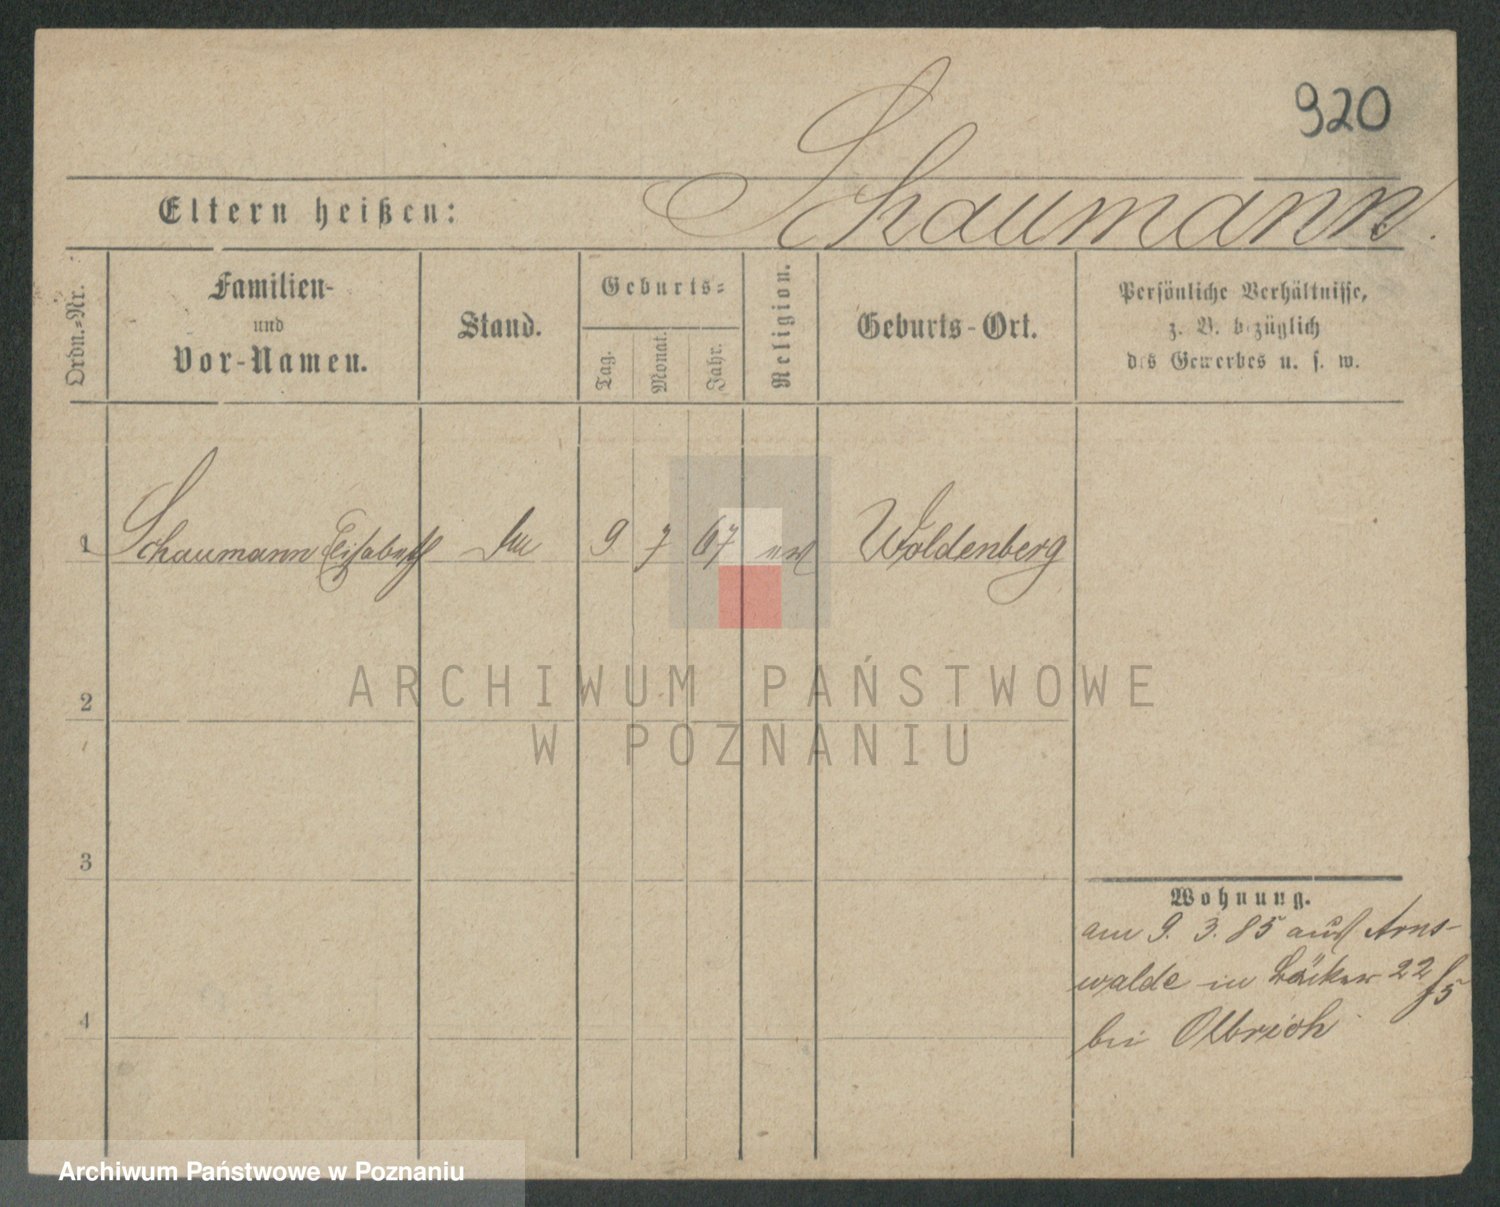 920
Schaumann
Eltern heißen:
Ordn.-Nr.
Familien-
und
Vor-Namen.
Stand.
Geburts-
Tag.
Monat.
Jahr.
Religion.
Geburts-Ort.
Persönliche Verhältnisse,
z. B. bezüglich
des Gewerbes u. s. w.
1 Schaumann Elisabeth 9 7 67 ev Woldenberg
2
3
4
Wohnung.
am 9. 3. 85 aus Arns-
walde in Bäcker 22/85
bei Olbrich
ARCHIWUM PAŃSTWOWE
W POZNANIU
Archiwum Państwowe w Poznaniu